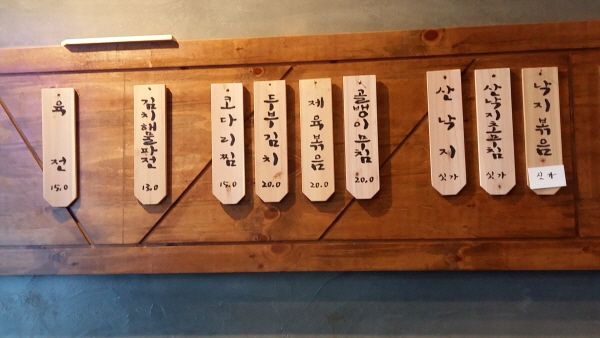 육전
15.0
김치해물파전
13.0
코다리찜
15.0
두부김치
20.0
제육볶음
20.0
골뱅이무침
20.0
산낙지
싯가
산낙지초무침
싯가
낙지볶음
싯가